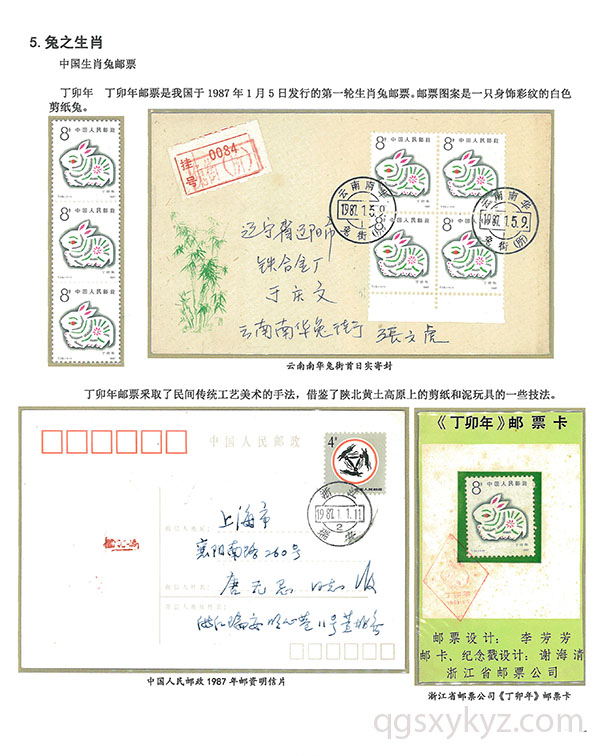 5. 兔之生肖
中国生肖兔邮票
丁卯年 丁卯年邮票是我国于1987年1月5日发行的第一轮生肖兔邮票。邮票图案是一只身饰彩纹的白色
剪纸兔。
8分 中国人民邮政
8分 中国人民邮政
8分 中国人民邮政
挂号
0084
8分 中国人民邮政
8分 中国人民邮政
8分 中国人民邮政
8分 中国人民邮政
云南南华
1987.1.5.9.
兔街(所)
云南南华
1987.1.5.9.
兔街(所)
辽宁省辽阳市
铁合金厂
于庆文
云南南华兔街 張文虎
云南南华兔街首日实寄封
丁卯年邮票采取了民间传统工艺美术的手法，借鉴了陕北黄土高原上的剪纸和泥玩具的一些技法。
中国人民邮政
4分
浙江
1987.1.1.11
2
瑞安
上海市
襄阳南路260号
唐无忌 同志 收
《丁卯年》邮票卡
8分
中国人民邮政
丁卯年
邮票设计：李芳芳
邮卡、纪念戳设计：谢海清
浙江省邮票公司
中国人民邮政1987年邮资明信片
浙江省邮票公司《丁卯年》邮票卡
qgsxykyz.com